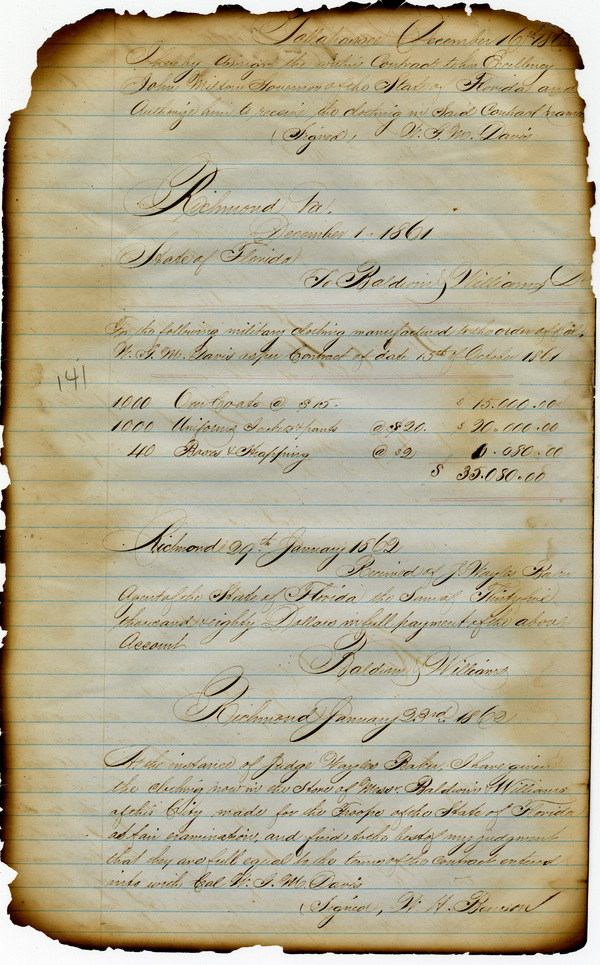 Tallahassee December 16th 186
I hereby assign the within Contract to his Excellency
John Milton Governor of the State of Florida and
Authorize him to receive the clothing in Said Contract named
(Signed) W. G. M. Davis
Richmond Va.
December 1. 1861
State of Florida
To Baldwin & Williams Dr
For the following military clothing manufactured to the order of Col.
W. G. M. Davis as per Contract of date 15th of October 1861
141
1000 Over Coats @ $15. $ 15.000.00
1000 Uniforms Jackets & pants @ $20. $ 20.000.00
40 Boxes & Strapping @ $2 0.080.00
$ 35.080.00
Richmond 29th January 1862
Received of J. Wayls Baker
Agent of the State of Florida the Sum of Thirty five
thousand & eighty Dollars in full payment of the above
Account
Baldwin & Williams
Richmond January 23rd 1862
At the instance of Judge Wayls Baker, I have given
the clothing now in the Store of Messr. Baldwin & Williams
of this City, made for the Troops of the State of Florida
a fair examination, and find to the best of my judgment
that they are full equal to the terms of the Contract entered
into with Col W. G. M. Davis
(Signed, W. H.